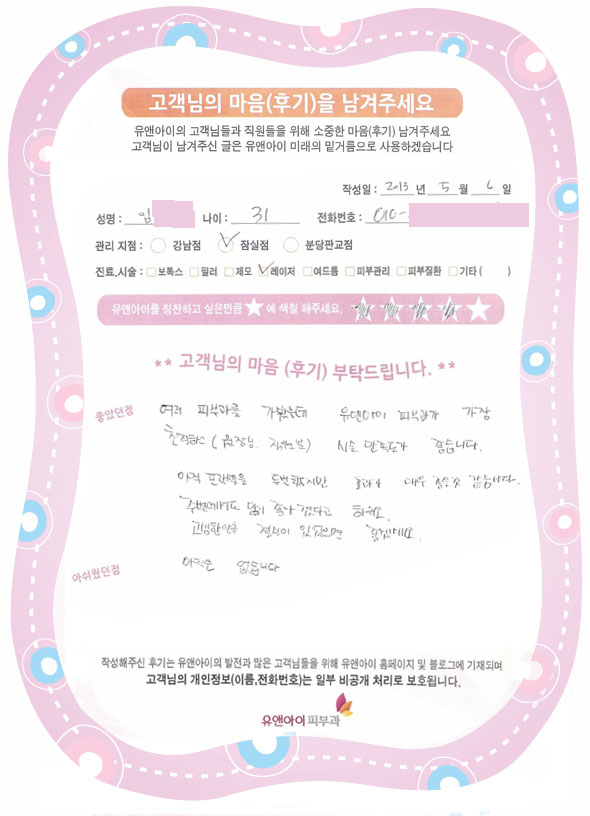 고객님의 마음(후기)을 남겨주세요
유앤아이의 고객님들과 직원들을 위해 소중한 마음(후기) 남겨주세요
고객님이 남겨주신 글은 유앤아이 미래의 밑거름으로 사용하겠습니다
작성일 : 2013 년 5 월 6 일
성명 : 임 나이 : 31 전화번호 : 010-
관리 지점 : 강남점 잠실점 분당판교점
진료,시술 : 보톡스 필러 제모 레이저 여드름 피부관리 피부질환 기타 ( )
유앤아이를 칭찬하고 싶은만큼 ★에 색칠 해주세요.
** 고객님의 마음 (후기) 부탁드립니다. **
좋았던점 여러 피부과를 가봤는데 유앤아이 피부과가 가장
친절하고 (원장님, 직원분) 시술 만족도가 좋습니다.
아직 프락셀을 두번했지만 효과가 매우 좋은것 같습니다.
주변에서도 많이 좋아졌다고 하네요.
결과 있었으면 좋겠네요.
아쉬웠던점 아직은 없습니다
작성해주신 후기는 유앤아이의 발전과 많은 고객님들을 위해 유앤아이 홈페이지 및 블로그에 기재되며
고객님의 개인정보(이름,전화번호)는 일부 비공개 처리로 보호됩니다.
유앤아이피부과